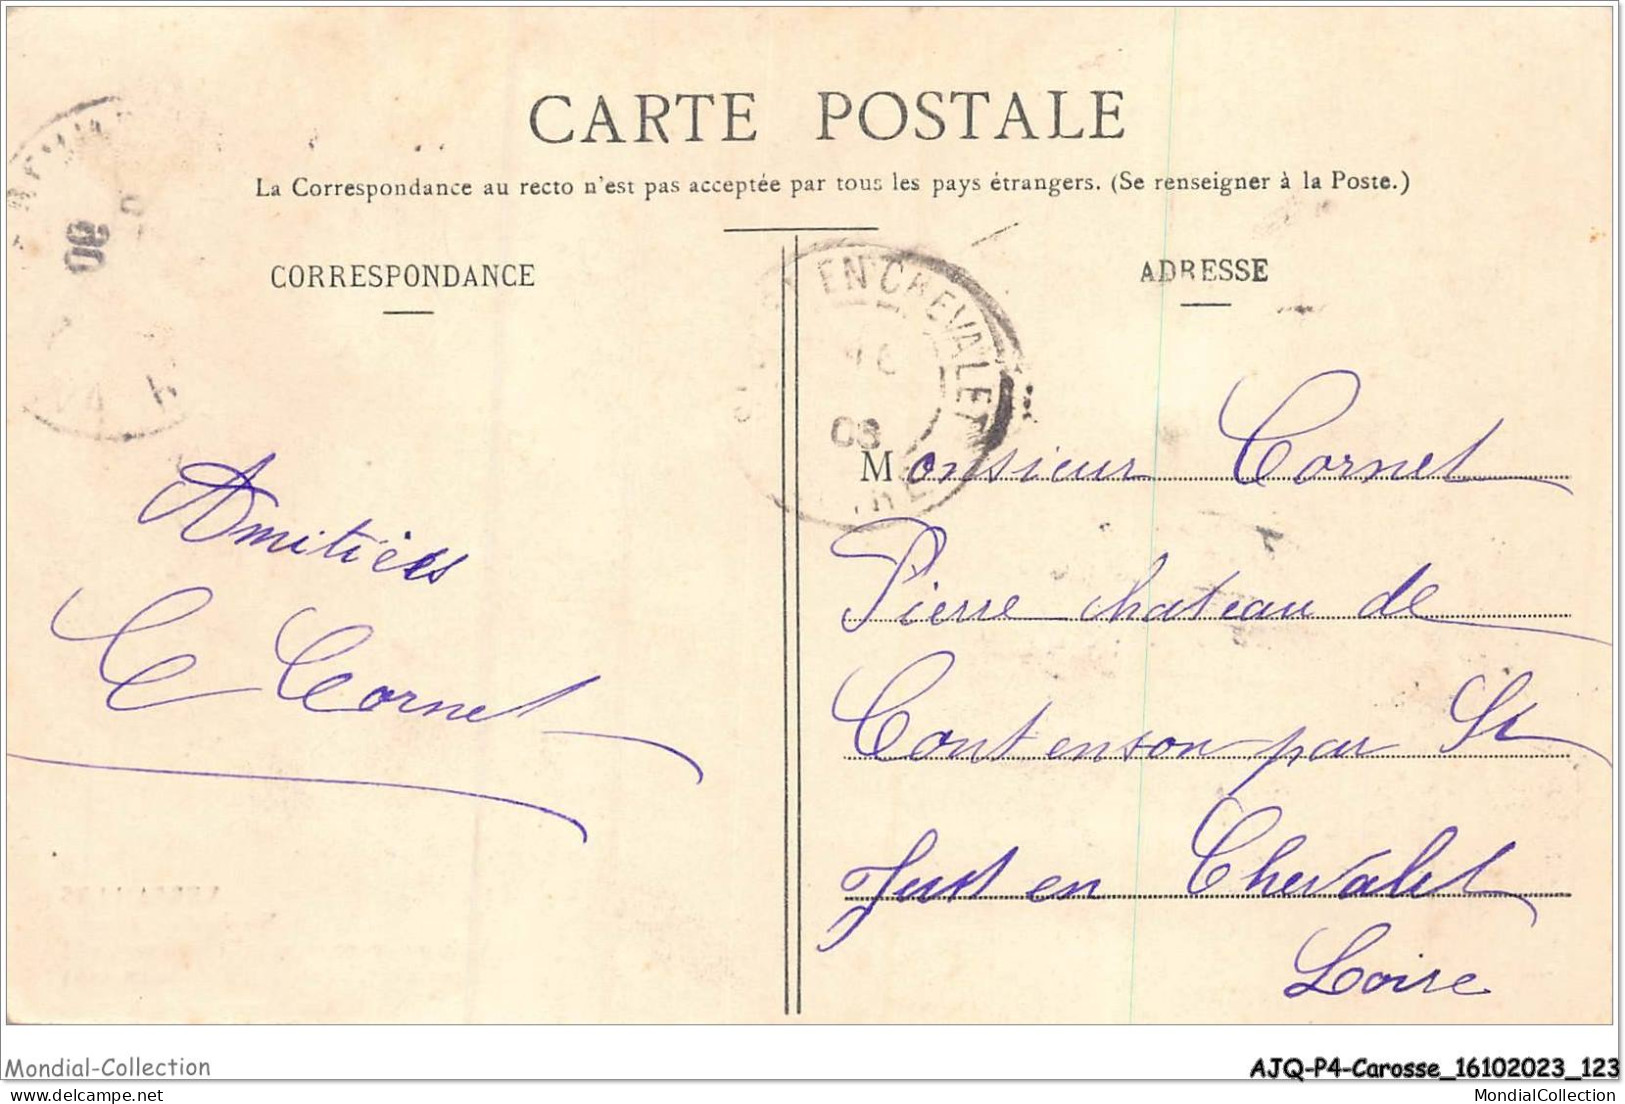 CARTE POSTALE
La Correspondance au recto n'est pas acceptée par tous les pays étrangers. (Se renseigner à la Poste.)
CORRESPONDANCE
ADRESSE
EN CHEVALET
08
Amitiés
Cornet
Monsieur Cornet
Pierre chateau de
Contenson par St
Just en Chevalet
Loire
Mondial-Collection
AJQ-P4-Carosse_16102023_123
MondialCollection